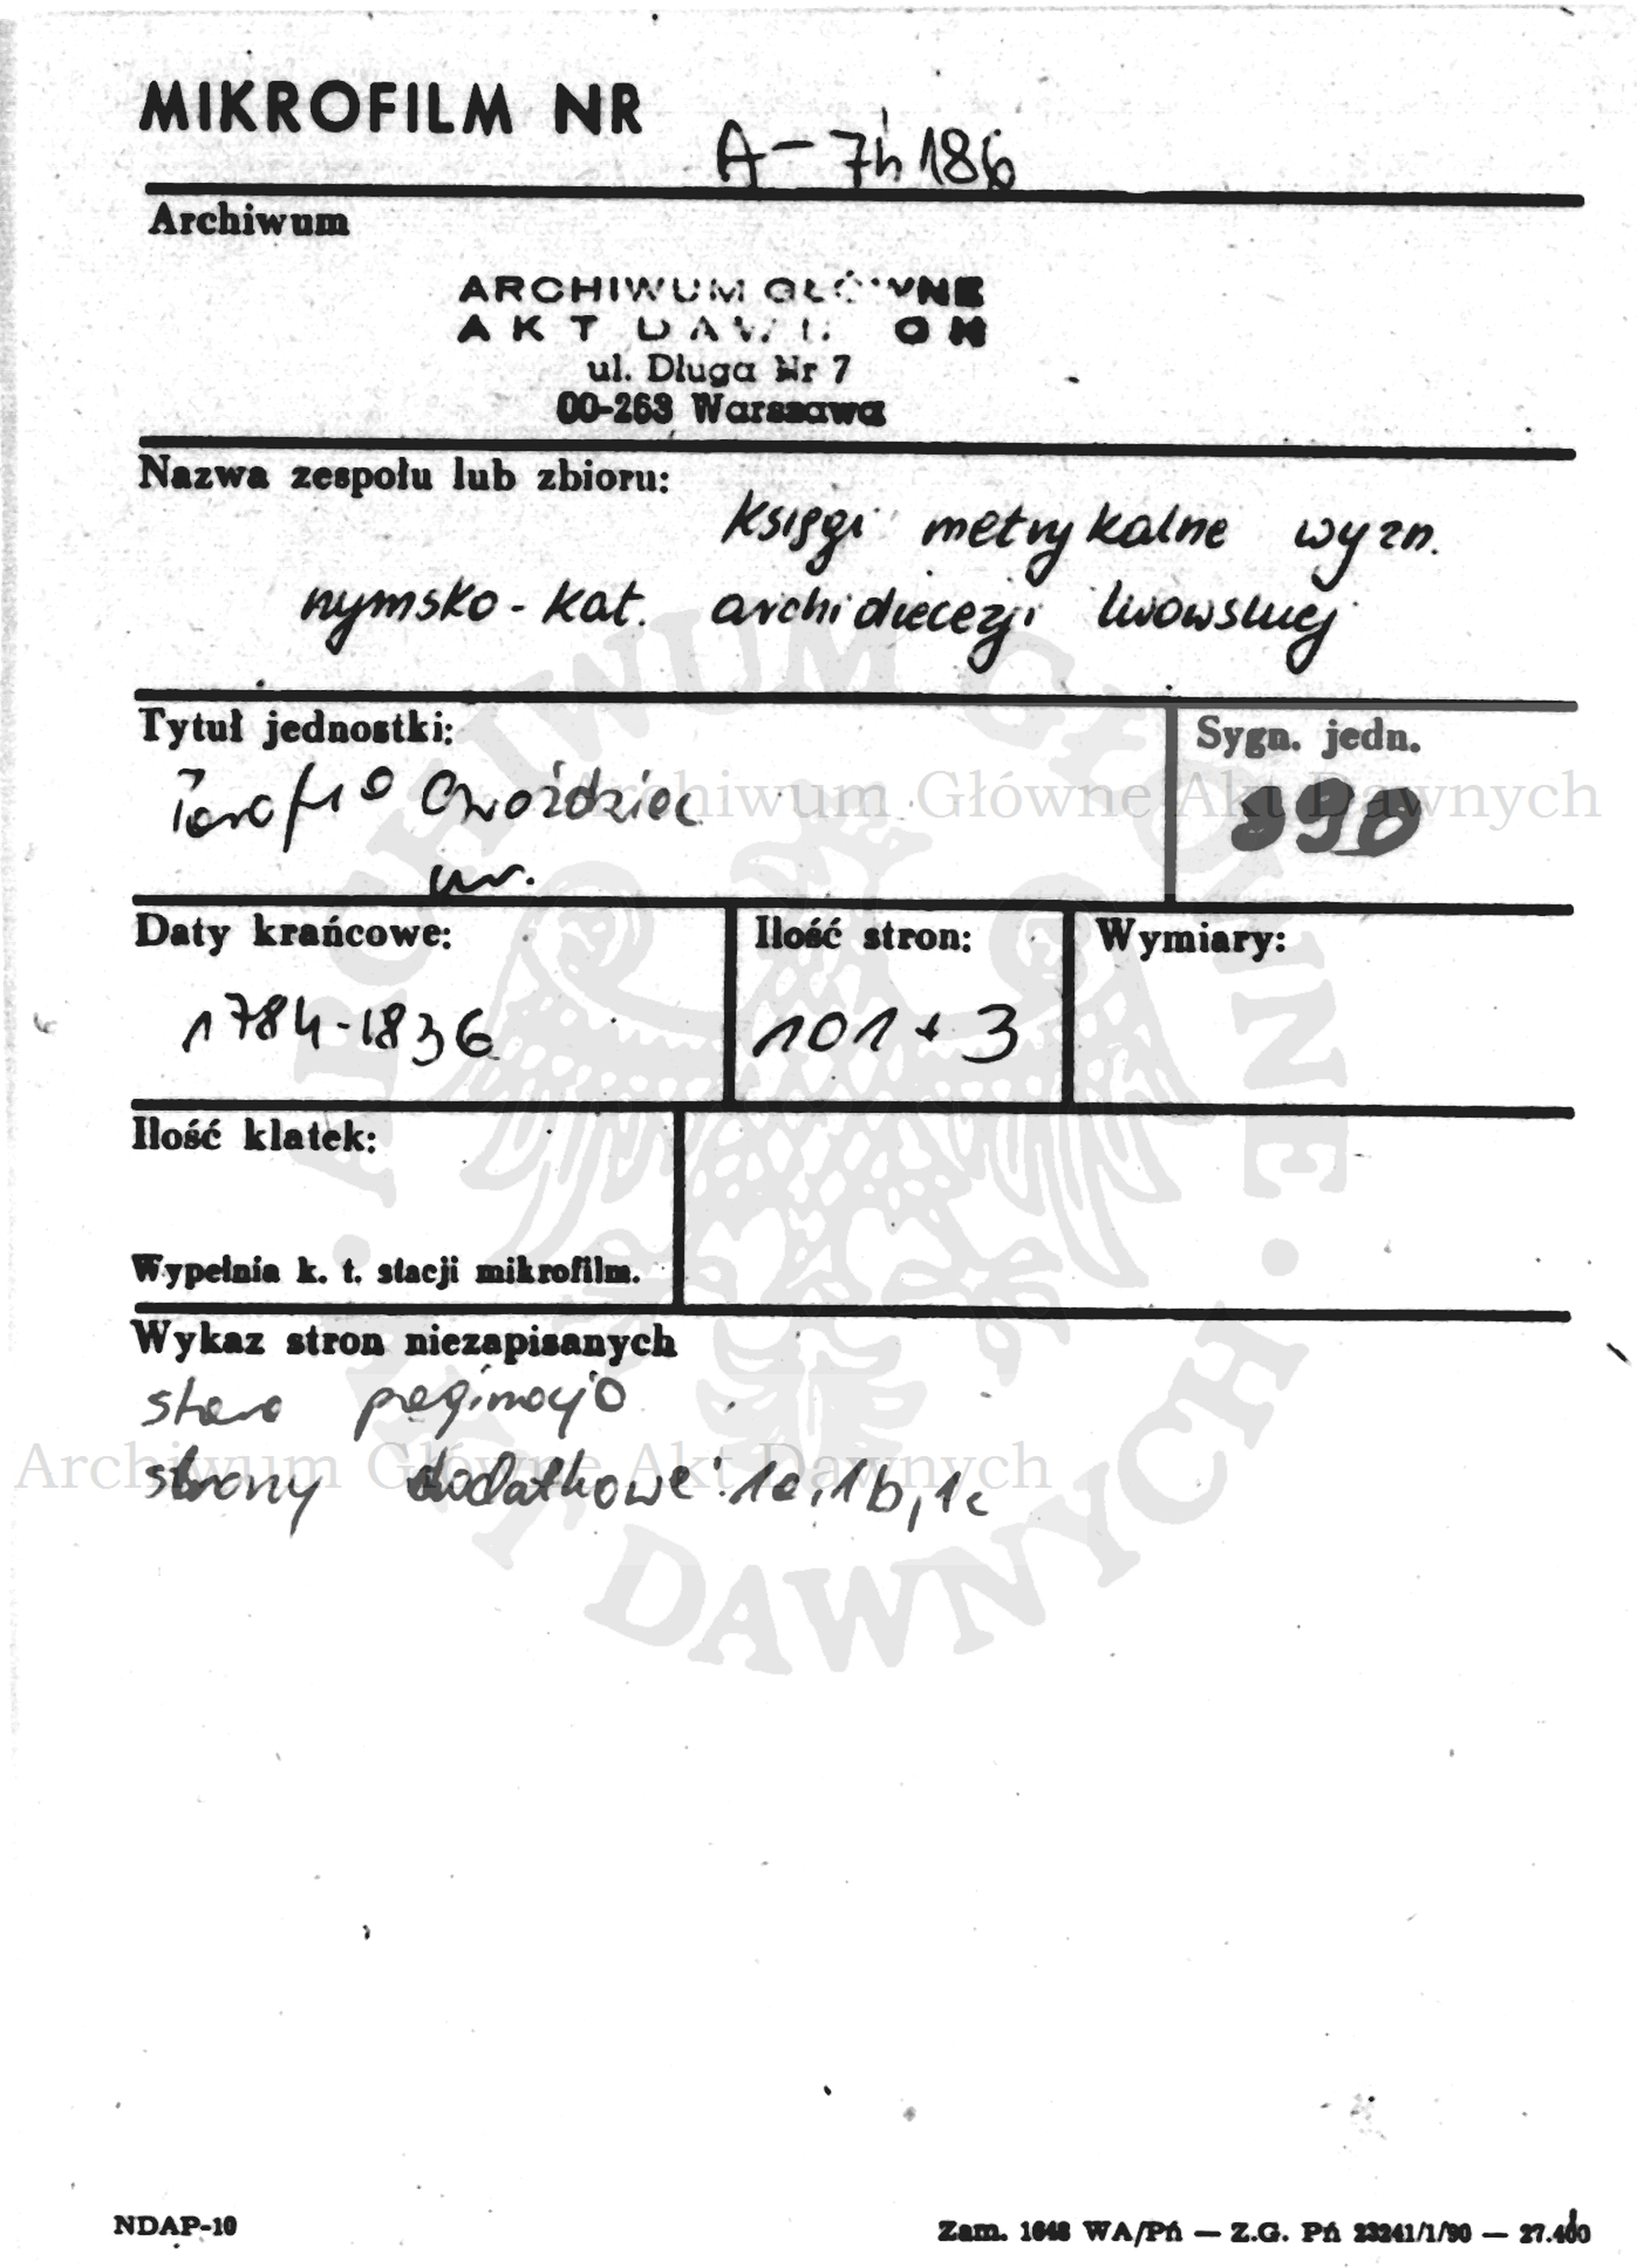 MIKROFILM NR
A-74186
Archiwum
ARCHIWUM GŁÓWNE
AKT DAWNYCH
ul. Długa Nr 7
00-263 Warszawa
Nazwa zespołu lub zbioru:
Księgi metrykalne wyzn.
rzymsko-kat. archidiecezji lwowskiej
Tytuł jednostki:
Sygn. jedn.
Parafia Gwoździec
890
ur.
Daty krańcowe:
Ilość stron:
Wymiary:
1784-1836
101+3
Ilość klatek:
Wypełnia k. t. stacji mikrofilm.
Wykaz stron niezapisanych
stara paginacja
strony dodatkowe: 1a,1b,1c
Archiwum Główne Akt Dawnych
Archiwum Główne Akt Dawnych
ARCHIWUM GŁÓWNE · AKT DAWNYCH ·
NDAP-10
Zam. 1648 WA/Pń — Z.G. Pń 23241/1/90 — 27.400